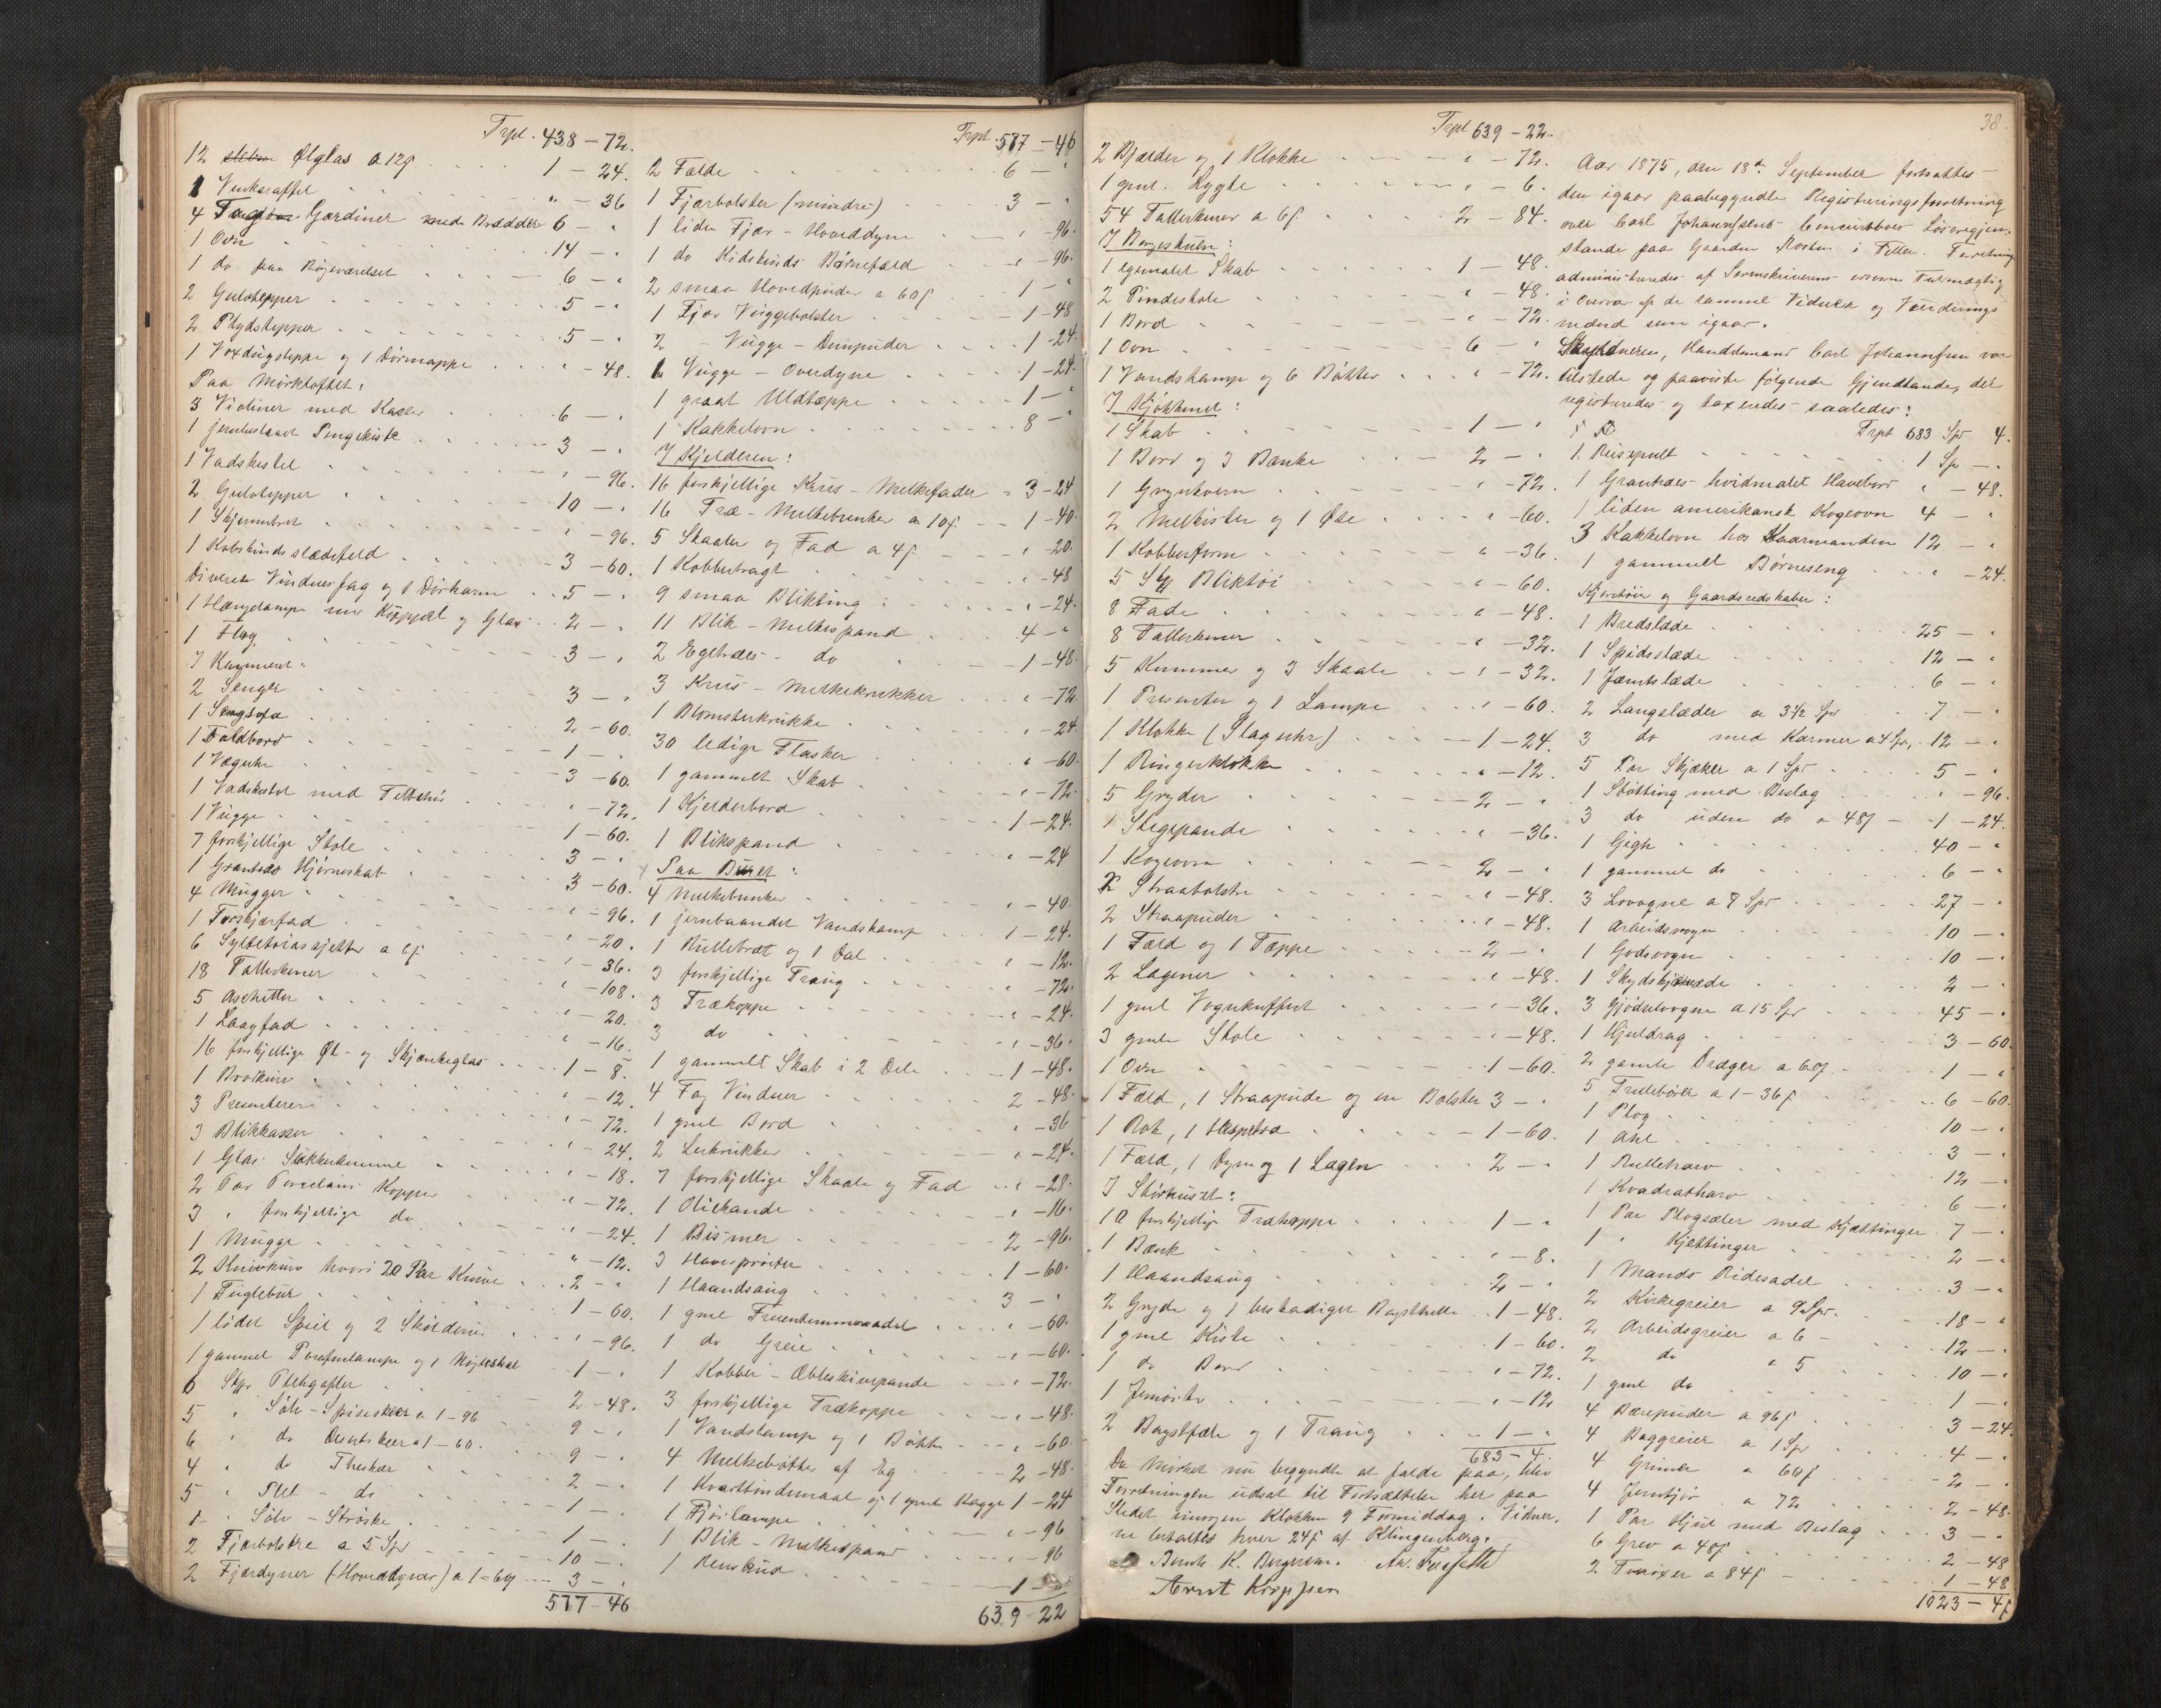 Trpt. 438-72.
12 Ølglas a 12ß 1 - 24.
1 Vinkaraffel " - 36
4 Fag Gardiner med Brædder 6 - "
1 Ovn 14 - "
1 do paa Røgeværelset 6 - "
2 Gulvtepper 5 - "
2 Plydstepper 5 - "
1 Voxdugsteppe og 1 Dørmappe " - 48.
Paa Mørkloftet:
3 Violiner med Kasser 6 - "
1 jernbeslaaet Pengekiste 3 - "
1 Vadskestel " - 96.
2 Gulvtepper 10 - "
1 Skjermbret " - 96.
1 Kobskindsslædefeld 3 - 60.
Diverse Vinduerfag og 1 Dørkarm 5 - "
1 Hængelampe med Kuppel og Glas 2 - "
1 Flag 3 - "
I Kammeret:
2 Senger 3 - "
1 Sengsofa 2 - 60.
1 Foldbord 1 - "
1 Væguhr 3 - 60.
1 Vadskestol med Tilbehør " - 72.
1 Vugge 1 - 60.
7 forskjellige Stole 3 - "
1 Grantræs Hjørneskab 3 - 60.
4 Mugger " - 96.
1 Forskjærfad " - 20.
6 Syltetøiassjetter a 6ß " - 36.
18 Tallerkener " - 108.
5 Aschetter " - 20.
1 Laagfad " - 16.
16 forskjellige Øl- og Skjænkeglas 1 - 8.
1 Brødkurv " - 12.
3 Presenterer " - 72.
3 Blikkasser " - 24.
1 Glas Sukkerkumme " - 18.
2 Par Porcelains Kopper " - 72.
3 " forskjellige do " - 24.
1 Mugge " - 12.
2 Knivkurv hvori 20 Par Knive 2 - "
1 Fuglebur 1 - 60.
1 lidet Speil og 2 Skilderier " - 96.
1 gammel Parafinlampe og 1 Nøgleskab 1 - "
6 Stk. Pletgafler 2 - 48.
5 " Sølv-Spiseskeer a 1-96 9 - "
6 " do Desertskeer a 1-60. 9 - "
4 " do Theskeer 2 - "
5 " Plet - do 1 - "
1 " Sølv-Strøske 1 - "
2 Fjærbolstre a 5 Spd 10 - "
2 Fjærdyner (Hoveddyner) a 1-60ß 3 - "
577-46
Trpt. 577-46
2 Fælde 6 - "
1 Fjærbolster (mindre) 3 - "
1 liden Fjær-Hoveddyne " - 96.
1 do Kidskinds Børnefæld " - 96.
2 smaa Hovedpuder a 60ß 1 - "
1 Fjær Vuggebolster 1 - 48
2 Vugge-Dunpuder 1 - 24.
1 Vugge-Overdyne 1 - 24.
1 graat Uldtæppe 1 - "
1 Kakkelovn 8 - "
I Kjelderen:
16 forskjellige Krus-Melkefader 3 - 24
16 Træ-Melkebunker a 10ß 1 - 40.
5 Skaaler og Fad a 4ß " - 20.
1 Kobbertragt " - 48
9 smaa Blikting " - 24.
11 Blik-Melkespand 4 - "
2 Egetræes- do 1 - 48.
3 Krus-Melkekrukker " - 72
1 Blomsterkrukke " - 24
30 ledige Flasker " - 60.
1 gammelt Skab " - 72.
1 Kjelderbord 1 - 24.
1 Blikspand " - 24
Paa Buret:
4 Melkebunker " - 40.
1 jernbaandet Vandskamp 1 - 24.
1 Rullebræt og 1 Dal " - 12.
3 forskjellige Traug " - 72.
3 Trækoppe " - 24.
3 do " - 36.
1 gammelt Skab i 2 Dele 1 - 48.
4 Fag Vinduer 2 - 48.
1 gml Bord " - 36
2 Lerkrukker " - 24.
7 forskjellige Skaale og Fad " - 28.
1 Oliekande " - 16.
1 Bismer 2 - 96.
3 Havesprøiter 1 - 60.
1 Haandsaug 3 - "
1 gml Fruentimmersadel " - 60.
1 do Greie " - 60.
1 Kobber-Æbleskivepande " - 72.
3 forskjellige Trækoppe " - 48.
1 Vandskamp og 1 Bøtte " - 60.
4 Melkebøtter af Eg 2 - 48.
1 Kvarttøndemaal og 1 gml Kagge 1 - 24
1 Fjøslampe " - 96
1 Blik-Melkespand " - 96
1 Renskind 1 - "
639-22
Trpt 639-22.
2 Bjælder og 1 Klokke " - 72.
1 gml. Lygte " - 6.
54 Tallerkener a 6ß 2 - 84.
I Borgestuen:
1 egemalet Skab 1 - 48.
2 Pindestole " - 48.
1 Bord " - 72.
1 Ovn 6 - "
1 Vandskamp og 6 Bøtter " - 72.
I Kjøkkenet:
1 Skab 1 - "
1 Bord og 3 Bænke 2 - "
1 Grynkvern " - 72.
2 Melkister og 1 Øse " - 60.
1 Kobberform " - 36.
5 Stk Bliktøi " - 60.
8 Fade " - 48.
8 Tallerkener " - 32.
5 Kummer og 3 Skaale " - 32.
1 Presenter og 1 Lampe " - 60.
1 Klokke (Slaguhr) 1 - 24.
1 Ringerklokke " - 12.
5 Gryder 2 - "
1 Stegepande " - 36.
1 Kogeovn 2 - "
2 Straabolstre " - 48.
2 Straapuder " - 48.
1 Fæld og 1 Tæppe 2 - "
2 Lagener " - 48.
1 gml Vognkuffert " - 36.
3 gmle Stole " - 48.
1 Ovn 1 - 60.
1 Fæld, 1 Straapude og en Bolster 3 - "
1 Rok, 1 Haspetræ 1 - 60.
1 Fæld, 1 Dyne og 1 Lagen 2 - "
I Størhuset:
10 forskjellige Trækoppe 1 - "
1 Bænk " - 8.
1 Haandsaug 2 - "
2 Gryder og 1 beskadiget Bagsthelle 1 - 48.
1 gml Kiste 1 - 60.
1 do Bord " - 72.
1 " - 12
2 Bagstfæle og 1 Traug 1 - "
683-4.
Da Mørket nu begyndte at falde paa, blev
Forretningen udsat til Fortsættelse her paa
Stedet imorgen Klokken 9 Formiddag. Vidner-
ne betaltes hver 24ß af Klingenberg.
Bernh. K. Bergersen.
Arnt Kroppen
38.
Aar 1875, den 18de September fortsattes
den igaar paabegyndte Registreringsforretning
over Carl Johannesens Concursboes Løsøregjen-
stande paa Gaarden Rosten i Tiller. Forretning
administreredes af Sorenskriverens Fuldmægtig
i Overvær af de samme Vidner og Vurderings
mænd som igaar.
Skyldneren, Handelsmand Carl Johannesen var
tilstede og paaviste følgende Gjenstande, der
registreredes og taxeredes saaledes:
Trpt 683 Spd 4.
1 Reisepult 1 Sp - "
1 Grantræes hvidmalet Havebord " - 48.
1 liden amerikansk Kogeovn 4 - "
3 Kakkelovne hos Gaarmanden 12 - "
1 gammelt Børneseng " - 24.
Kjøretøier og Gaardsredskaber:
1 Bredslæde 25 - "
1 Spidsslæde 12 - "
1 Jæmtslæde 6 - "
2 Langslæder a 3 1/2 Spd 7 - "
3 do med Karmer a 4 Spd 12 - "
5 Par Skjæker a 1 Spd 5 - "
1 Støtting med Beslag " - 96.
3 do uden do a 48ß 1 - 24.
1 Gigh 40 - "
1 gammel do 6 - "
3 Lovogne a 9 Spd 27 - "
1 Arbeidsvogn 10 - "
1 Godsvogn 10 - "
1 Skydskjærre 2 - "
3 Gjødselvogne a 15 Spd 45 - "
1 Hjuldrag 3 - 60.
2 gamle Dræger a 60ß 1 - "
5 Trillebører a 1-36ß 6 - 60.
1 Plog 10 - "
1 Ahl 3 - "
1 Rulleharv 12 - "
1 Kvadratharv 6 - "
1 Par Plogseler med Kjættinger 7 - "
1 " Kjettinger 2 - "
1 Mands Ridesadel 3 - "
2 Kirkegreier a 9 Spd. 18 - "
2 Arbeidsgreier a 6 - 12 - "
2 do " 5 10 - "
1 gml do 1 - "
4 Bærepuder a 96ß 3 - 24.
4 Baggreier a 1 Spd 4 - "
4 Grimer a 60ß 2 - "
4 a 72 2 - 48.
1 Par Hjul med Beslag 3 - "
6 Grev a 48ß 2 - 48
2 a 84ß 1 - 48
1023 - 4ß